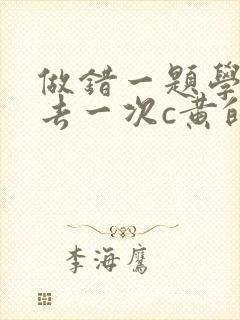 做錯一題學
去一次c黄自
李海鷹